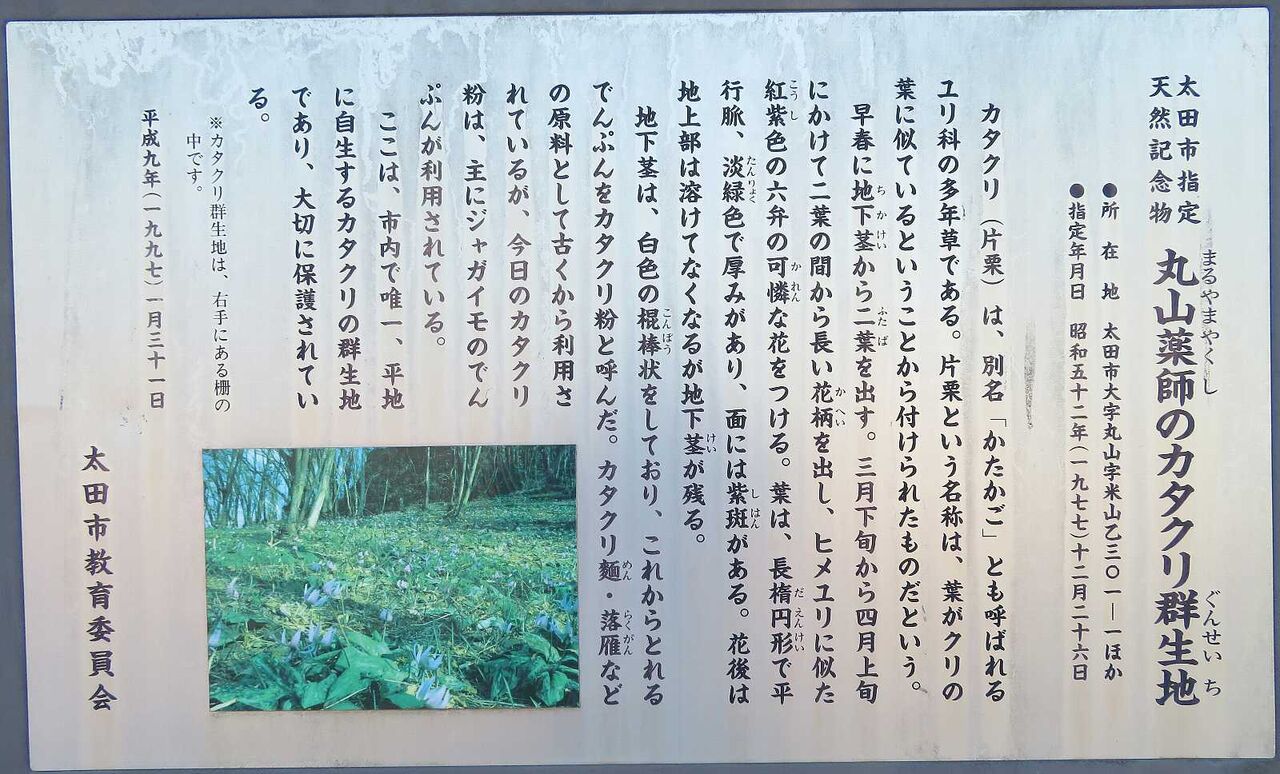 太田市指定
天然記念物
丸山薬師のカタクリ群生地
まるやまやくし
ぐんせいち
●所在地 太田市大字丸山字米山乙三〇一―一ほか
●指定年月日 昭和五十二年(一九七七)十二月二十六日
カタクリ(片栗)は、別名「かたかご」とも呼ばれる
ユリ科の多年草である。片栗という名称は、葉がクリの
葉に似ているということから付けられたものだという。
早春に地下茎から二葉を出す。三月下旬から四月上旬
ちかけい
ふたば
にかけて二葉の間から長い花柄を出し、ヒメユリに似た
かへい
紅紫色の六弁の可憐な花をつける。葉は、長楕円形で平
こうし
かれん
だえんけい
行脈、淡緑色で厚みがあり、面には紫斑がある。花後は
たんりょく
しはん
地上部は溶けてなくなるが地下茎が残る。
けい
地下茎は、白色の棍棒状をしており、これからとれる
こんぼう
でんぷんをカタクリ粉と呼んだ。カタクリ麺・落雁など
めん
らくがん
の原料として古くから利用さ
れているが、今日のカタクリ
粉は、主にジャガイモのでん
ぷんが利用されている。
ここは、市内で唯一、平地
に自生するカタクリの群生地
であり、大切に保護されてい
る。
※カタクリ群生地は、右手にある柵の
中です。
平成九年(一九九七)一月三十一日
太田市教育委員会